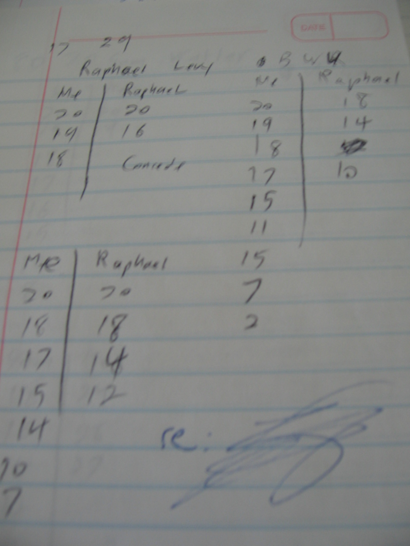 17 29
DATE
Raphael Levy B W 4
Me Raphael
20 20
19 16
18 Concede
Me Raphael
20 18
19 14
18
17 10
15
11
15
7
2
Me Raphael
20 20
18 18
17 14
15 12
14
10
7
re: